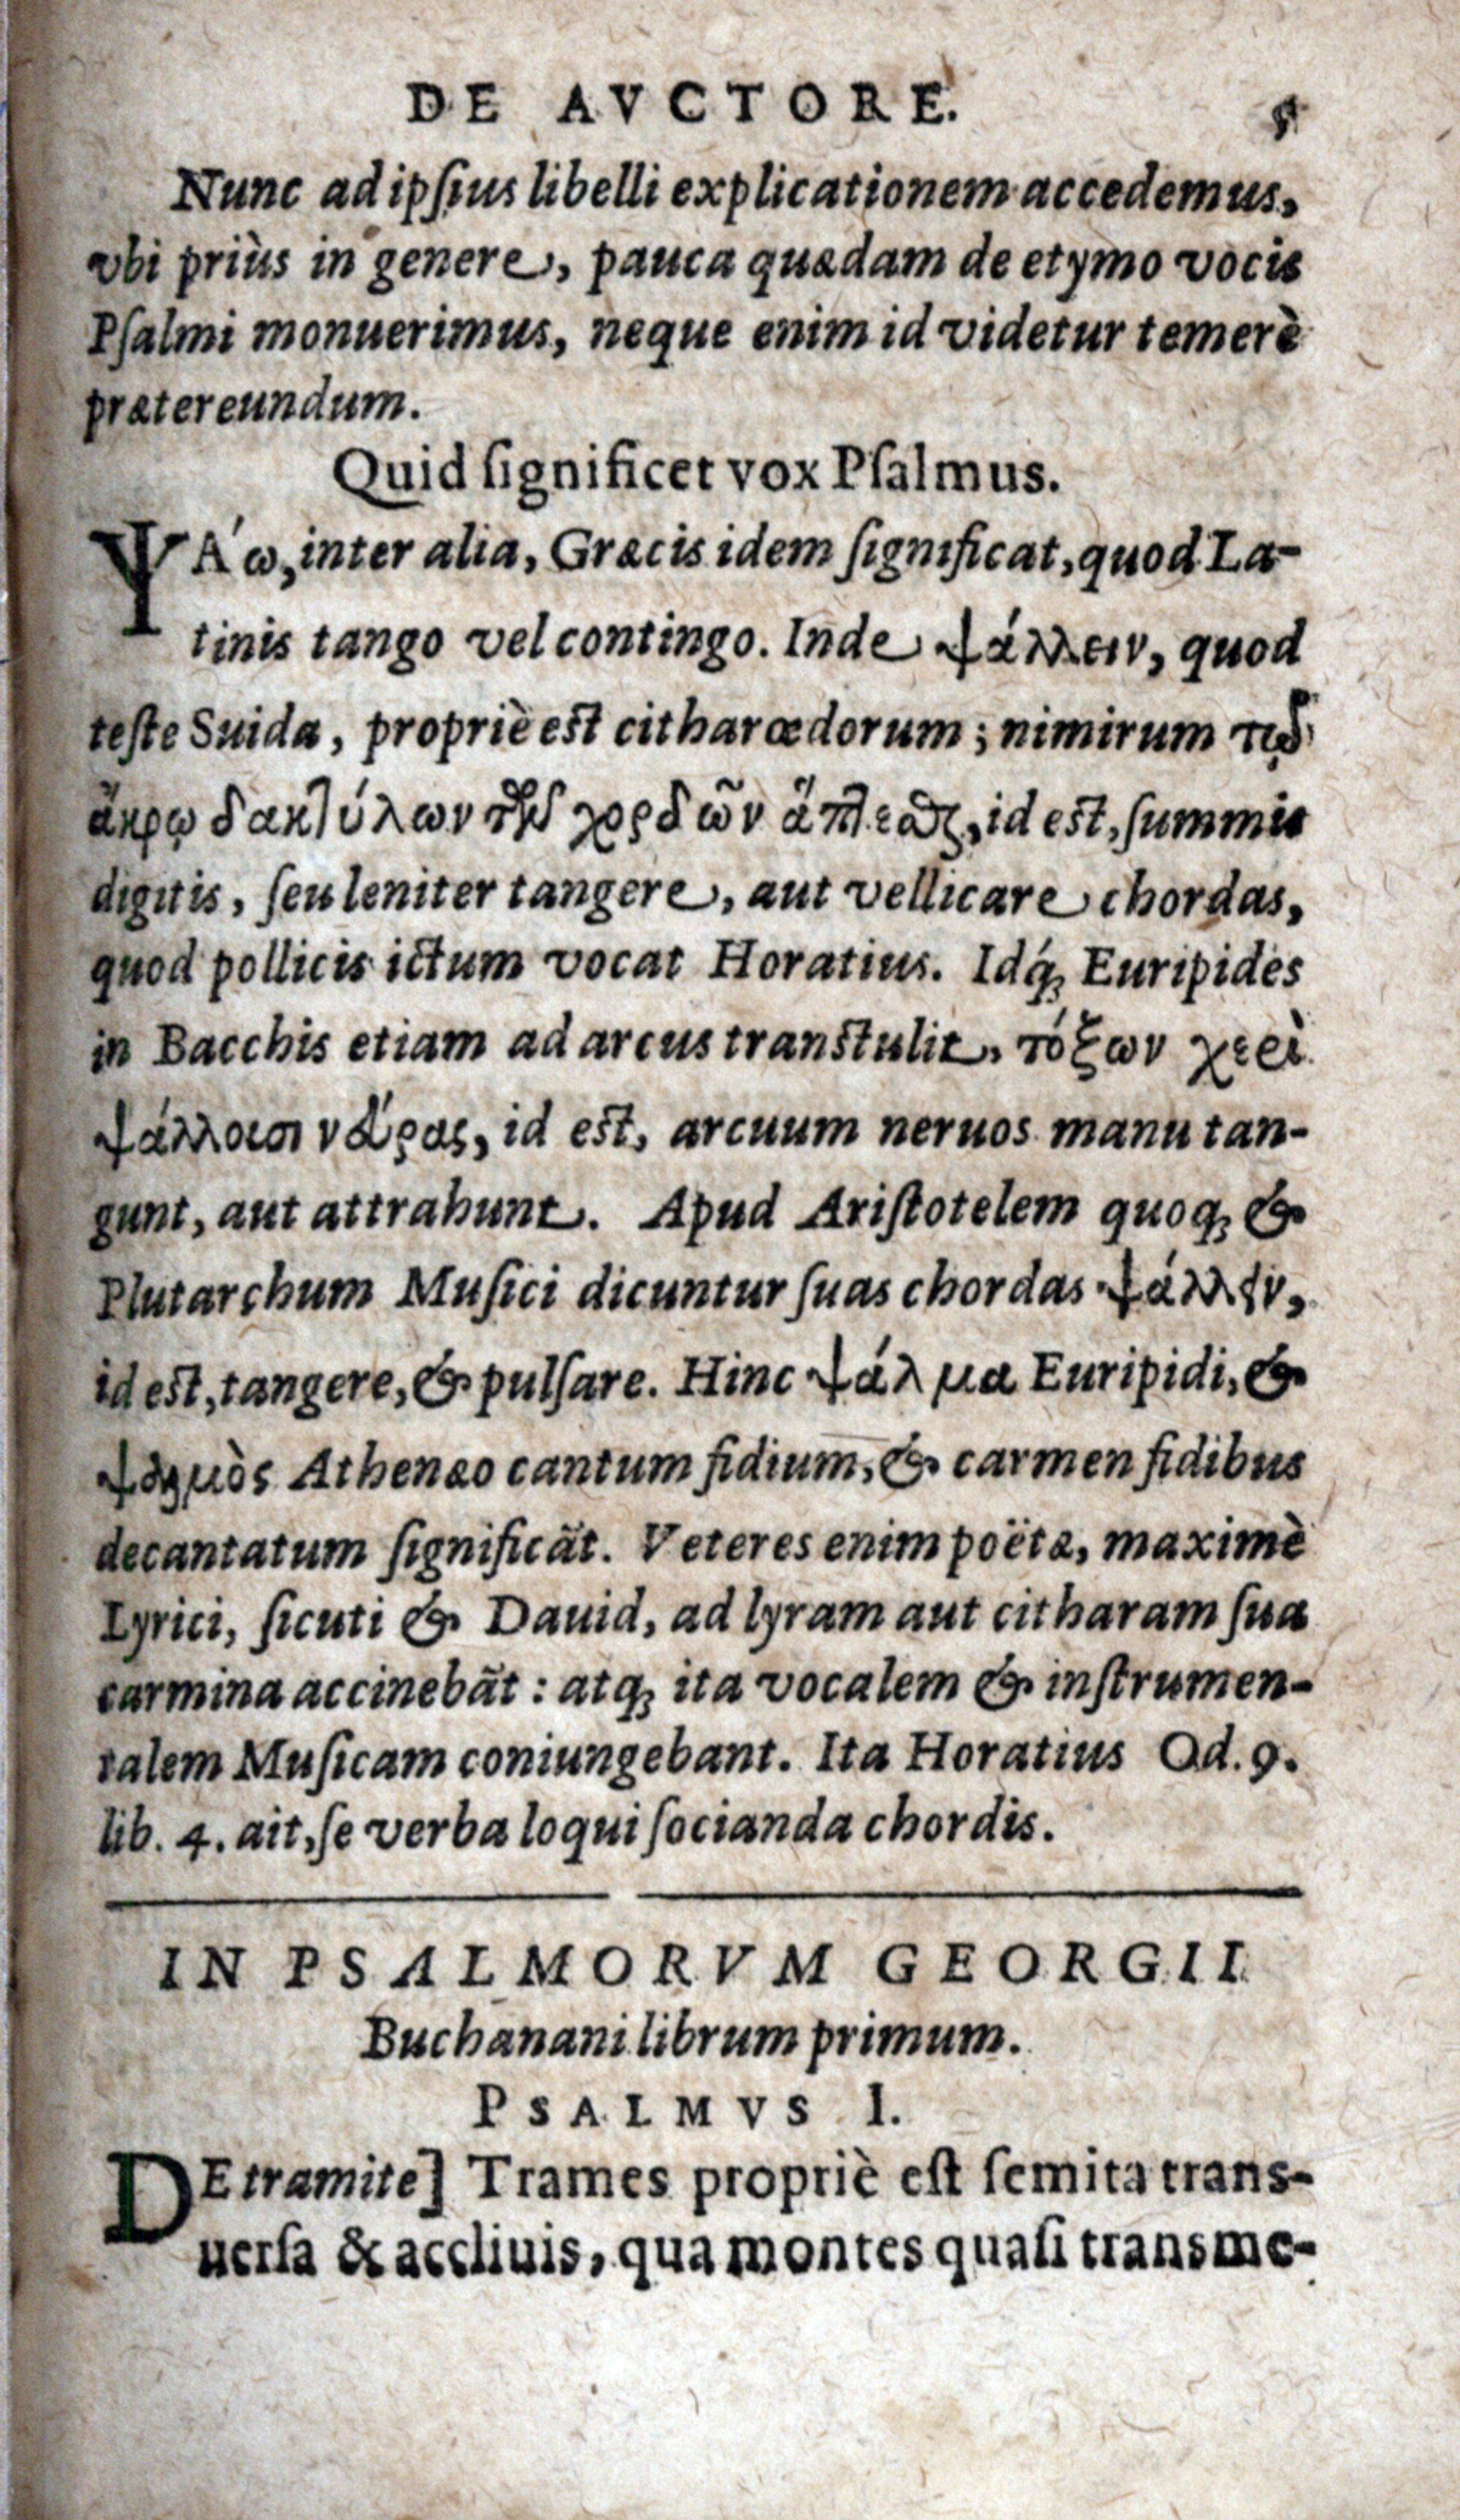 DE AVCTORE.
Nunc ad ipſius libelli explicationem accedemus,
vbi priùs in genere, pauca quædam de etymo vocis
Pſalmi monuerimus, neque enim id videtur temerè
prætereundum.
Quid ſignificet vox Pſalmus.
ΨΆω, inter alia, Græcis idem ſignificat, quod La-
tinis tango vel contingo. Inde ψάλλειν, quod
teſte Suida, propriè eſt citharœdorum; nimirum τῷ
ἄκρῳ δακτύλων τῶν χορδῶν ἅπτεσθαι, id eſt, ſummis
digitis, ſeu leniter tangere, aut vellicare chordas,
quod pollicis ictum vocat Horatius. Idq́; Euripides
in Bacchis etiam ad arcus tranſtulit, τόξων χερὶ
ψάλλουσι νευρὰς, id eſt, arcuum neruos manu tan-
gunt, aut attrahunt. Apud Ariſtotelem quoq; &
Plutarchum Muſici dicuntur ſuas chordas ψάλλειν,
id eſt, tangere, & pulſare. Hinc ψάλμα Euripidi, &
ψαλμὸς Athenæo cantum fidium, & carmen fidibus
decantatum ſignificāt. Veteres enim poëtæ, maximè
Lyrici, ſicuti & Dauid, ad lyram aut citharam ſua
carmina accinebāt: atq; ita vocalem & inſtrumen-
talem Muſicam coniungebant. Ita Horatius Od. 9.
lib. 4. ait, ſe verba loqui ſocianda chordis.
IN PSALMORVM GEORGII
Buchanani librum primum.
PSALMVS I.
DE tramite] Trames propriè eſt ſemita trans-
uerſa & accliuis, qua montes quaſi transme-